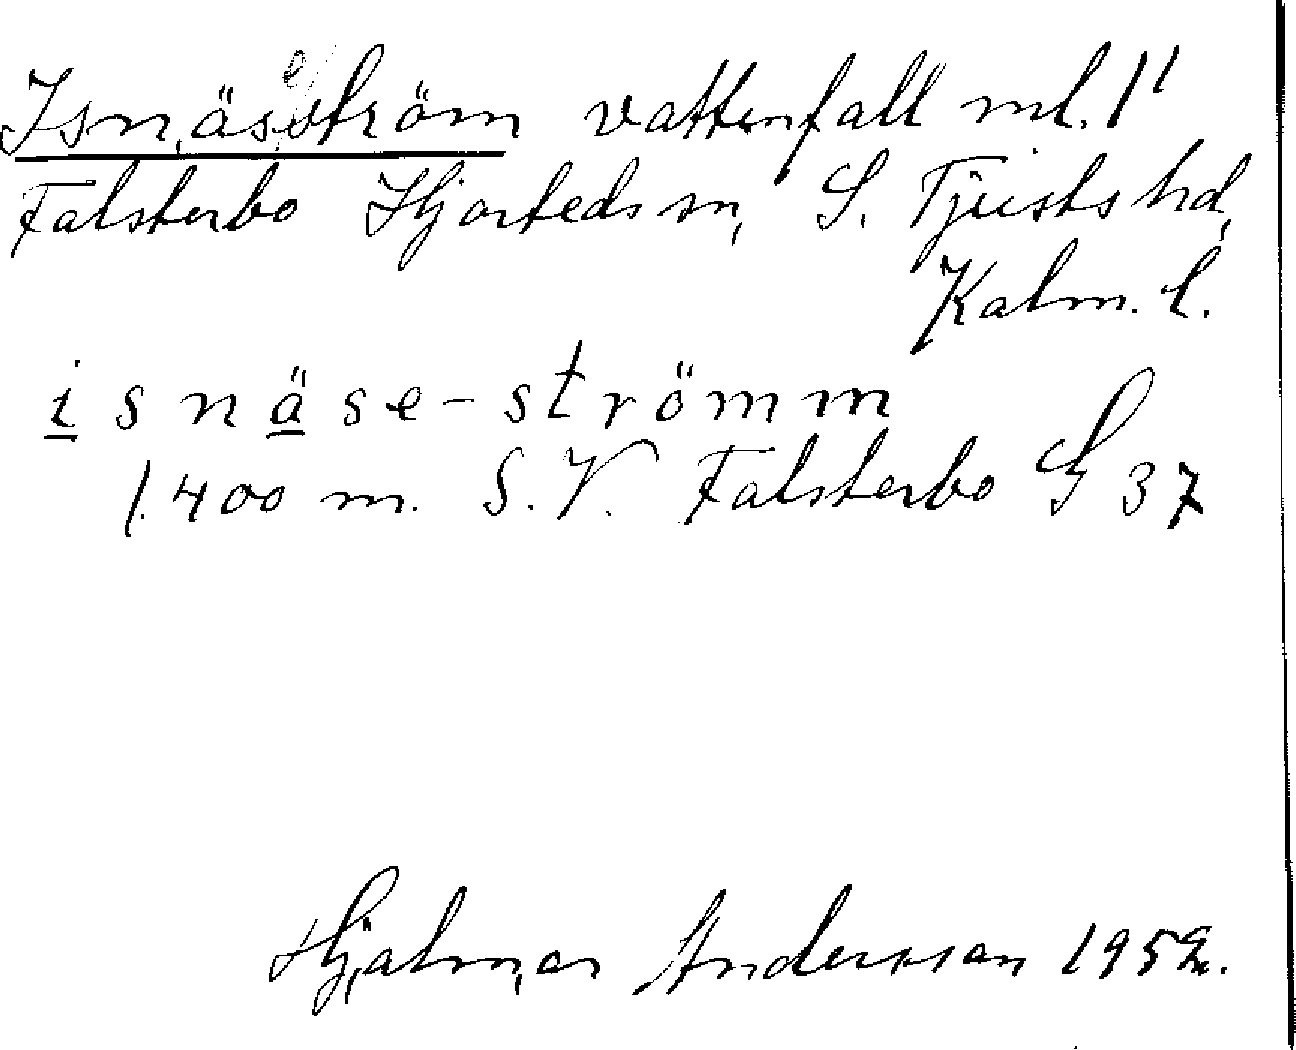 Isnäseström vattenfall ml. 1¹
Falsterbo Hjorteds sn, S. Tjusts hd,
Kalm. l.
isnäse-strömm
1.400 m. S.V. Falsterbo G 37
Hjalmar Andersson 1952.